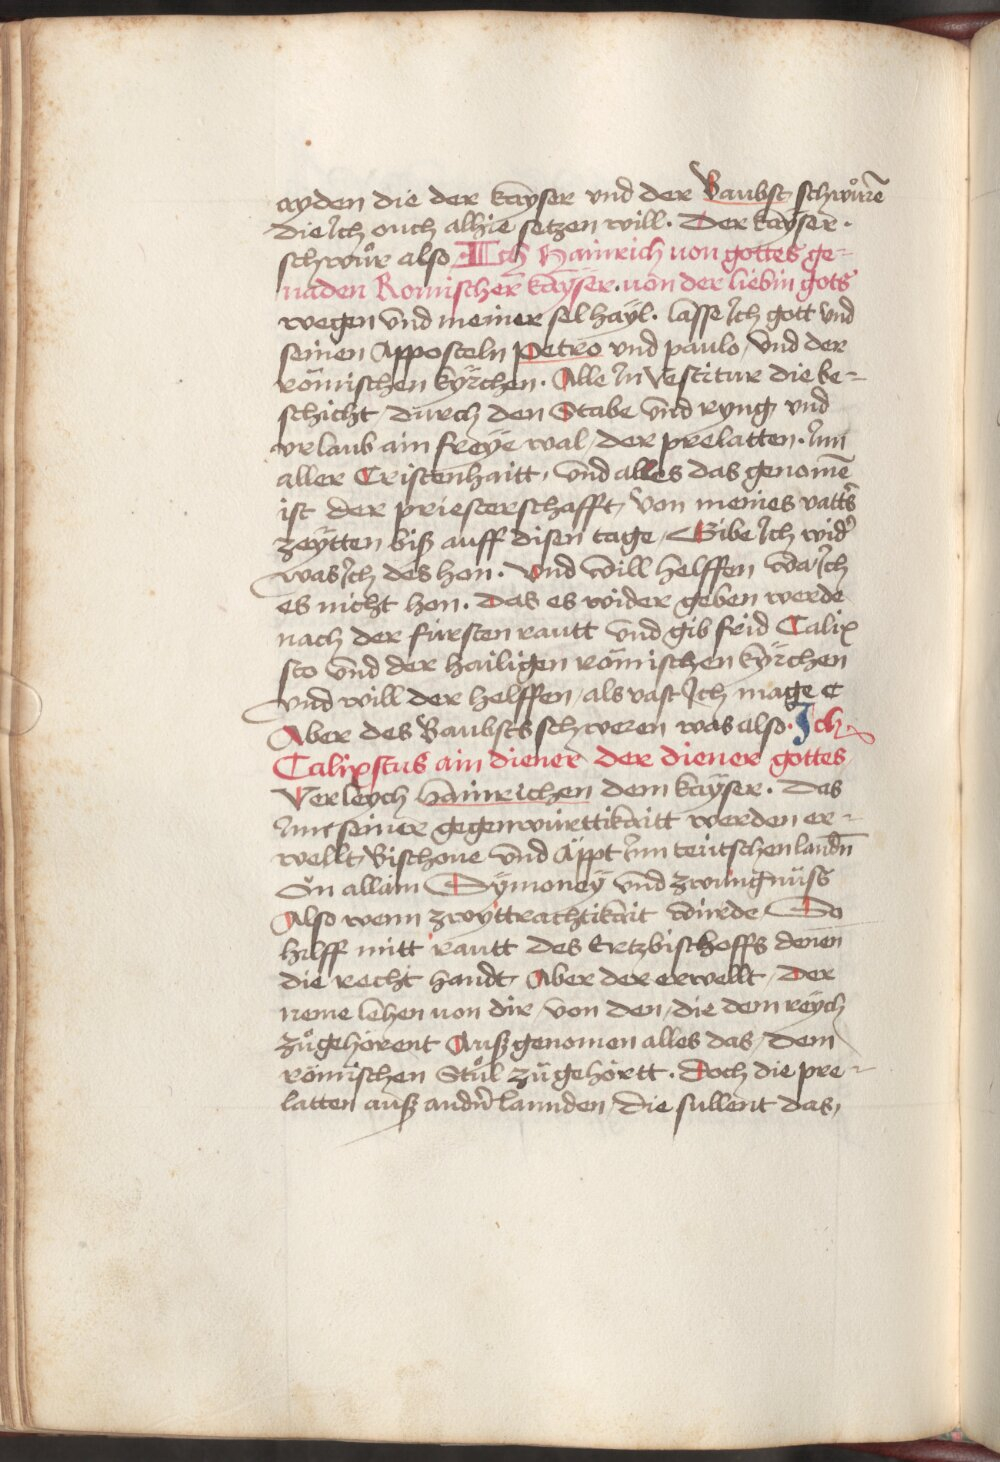 ayden die der kayser vnd der Baubst schwůrē
die Ich ouch alhie setzen will. Der kayser.
schwůr also Ich Hainrich von gottes ge-
naden Romischer kayser. von der liebin gots
wegen vnd meiner sel hayl. lasse Ich gott vnd
seinen Apposteln Petro vnd paulo, vnd der
römischen kÿrchen. Alle In Vestitur die be-
schicht, durch den Stabe vnd ryng vnd
vrlaub ain freye wal, der prelatten. Inn
aller Cristenhaitt, vnd alles das genomē
ist der priesterschafft, von meines vatt's
zeytten biß auff disen tage, Gibe Ich wid'
was Ich des hon. vnd will helffen wa Ich
es nicht hon. Das es wider geben werde
nach der fürsten rautt vnd gib frid Calix
sto vnd der hailigen römischen kÿrchen
vnd will der helffen, als vast Ich mage
Aber des Baubsts schweren was also. Ich
Calixstus ain diener der diener gottes
Verleych Hainrichen dem kaÿser. Das
Inn seiner gegenwürttikaitt werden er-
wellt, Bischoue vnd Äppt Inn teütschen landn̄
On allain Sÿmoneÿ vnd zwungnüß
Also wenn zwyttrachtikait würde So
hilff mitt rautt des Ertzbischoffs denen
die recht handt, Aber der erwellt, Der
neme lehen von dir, von den, die dem reych
zůgehörent Außgenomen alles das, dem
römischen Stůl zůgehörtt. Doch die pre-
latten auß andn̄ lannden, die sullent das,